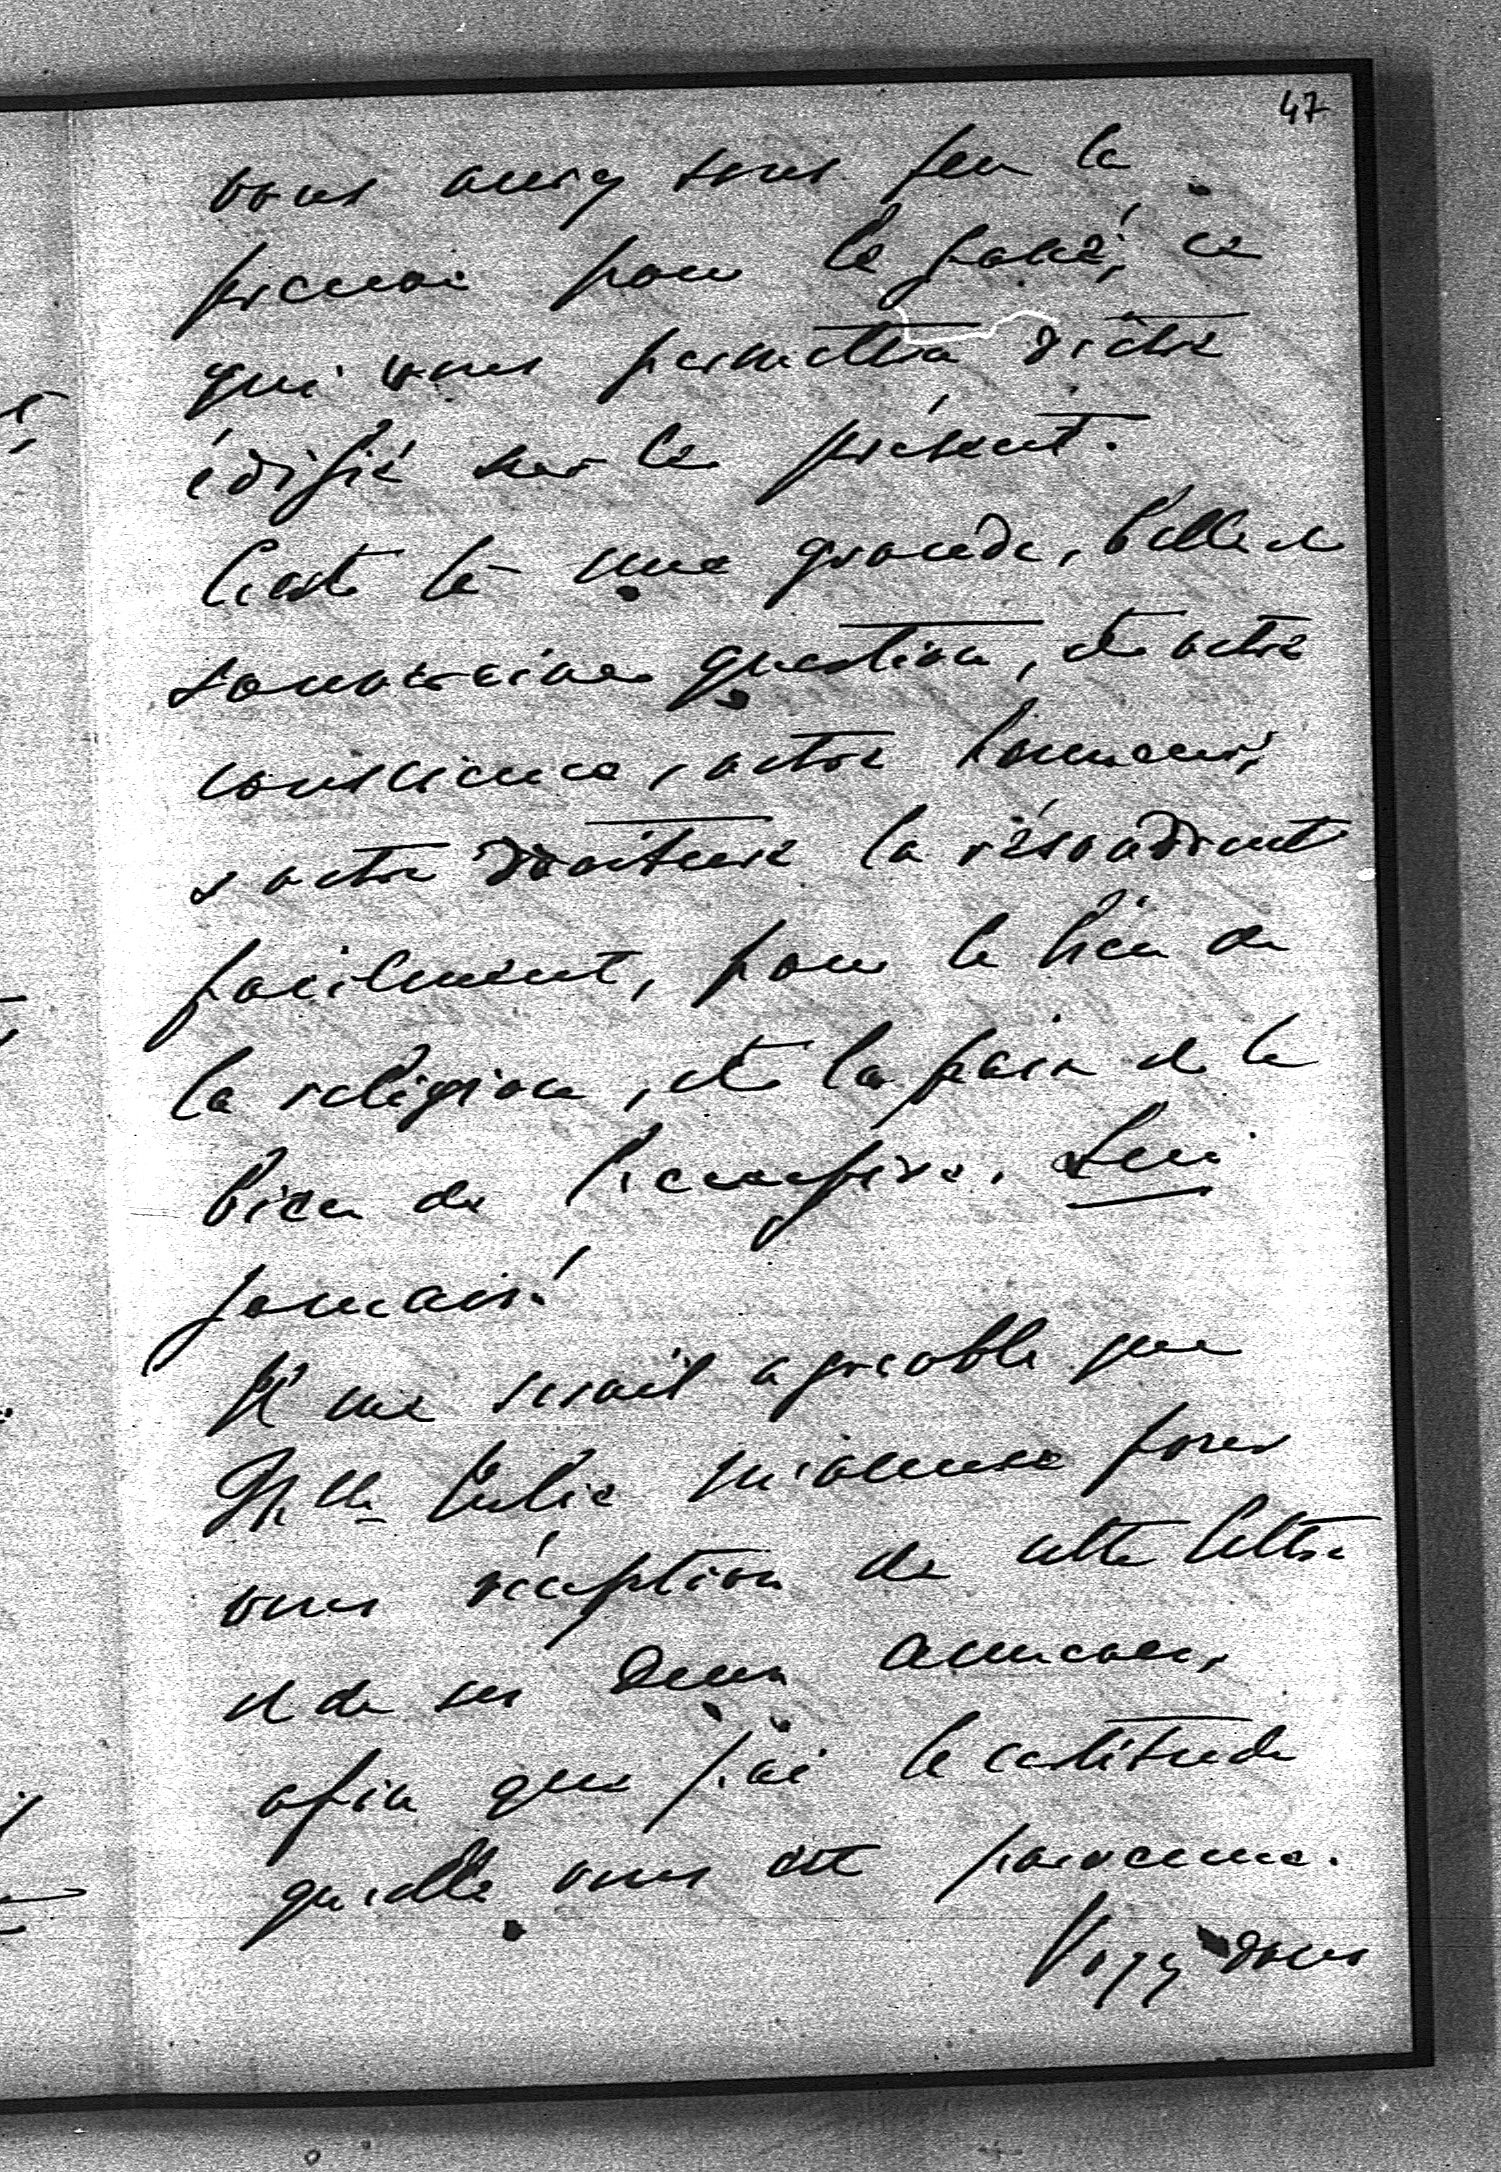 47
vous aurez sous peu la
preuve pour le passé, ce
qui vous permettra d'être
édifié sur le présent.
C'est là une grande, belle et
souveraine question, et votre
conscience, votre honneur,
votre droiture la résoudront
facilement, pour le bien de
la religion, et la paix et le
bien de l'empire. Lui
jamais!
Il me serait agréable que
Mlle Julie m'accuse pour
vous réception de cette lettre
et de ses deux annexes,
afin que j'ai la certitude
qu'elle vous est parvenue.
Voyez dans